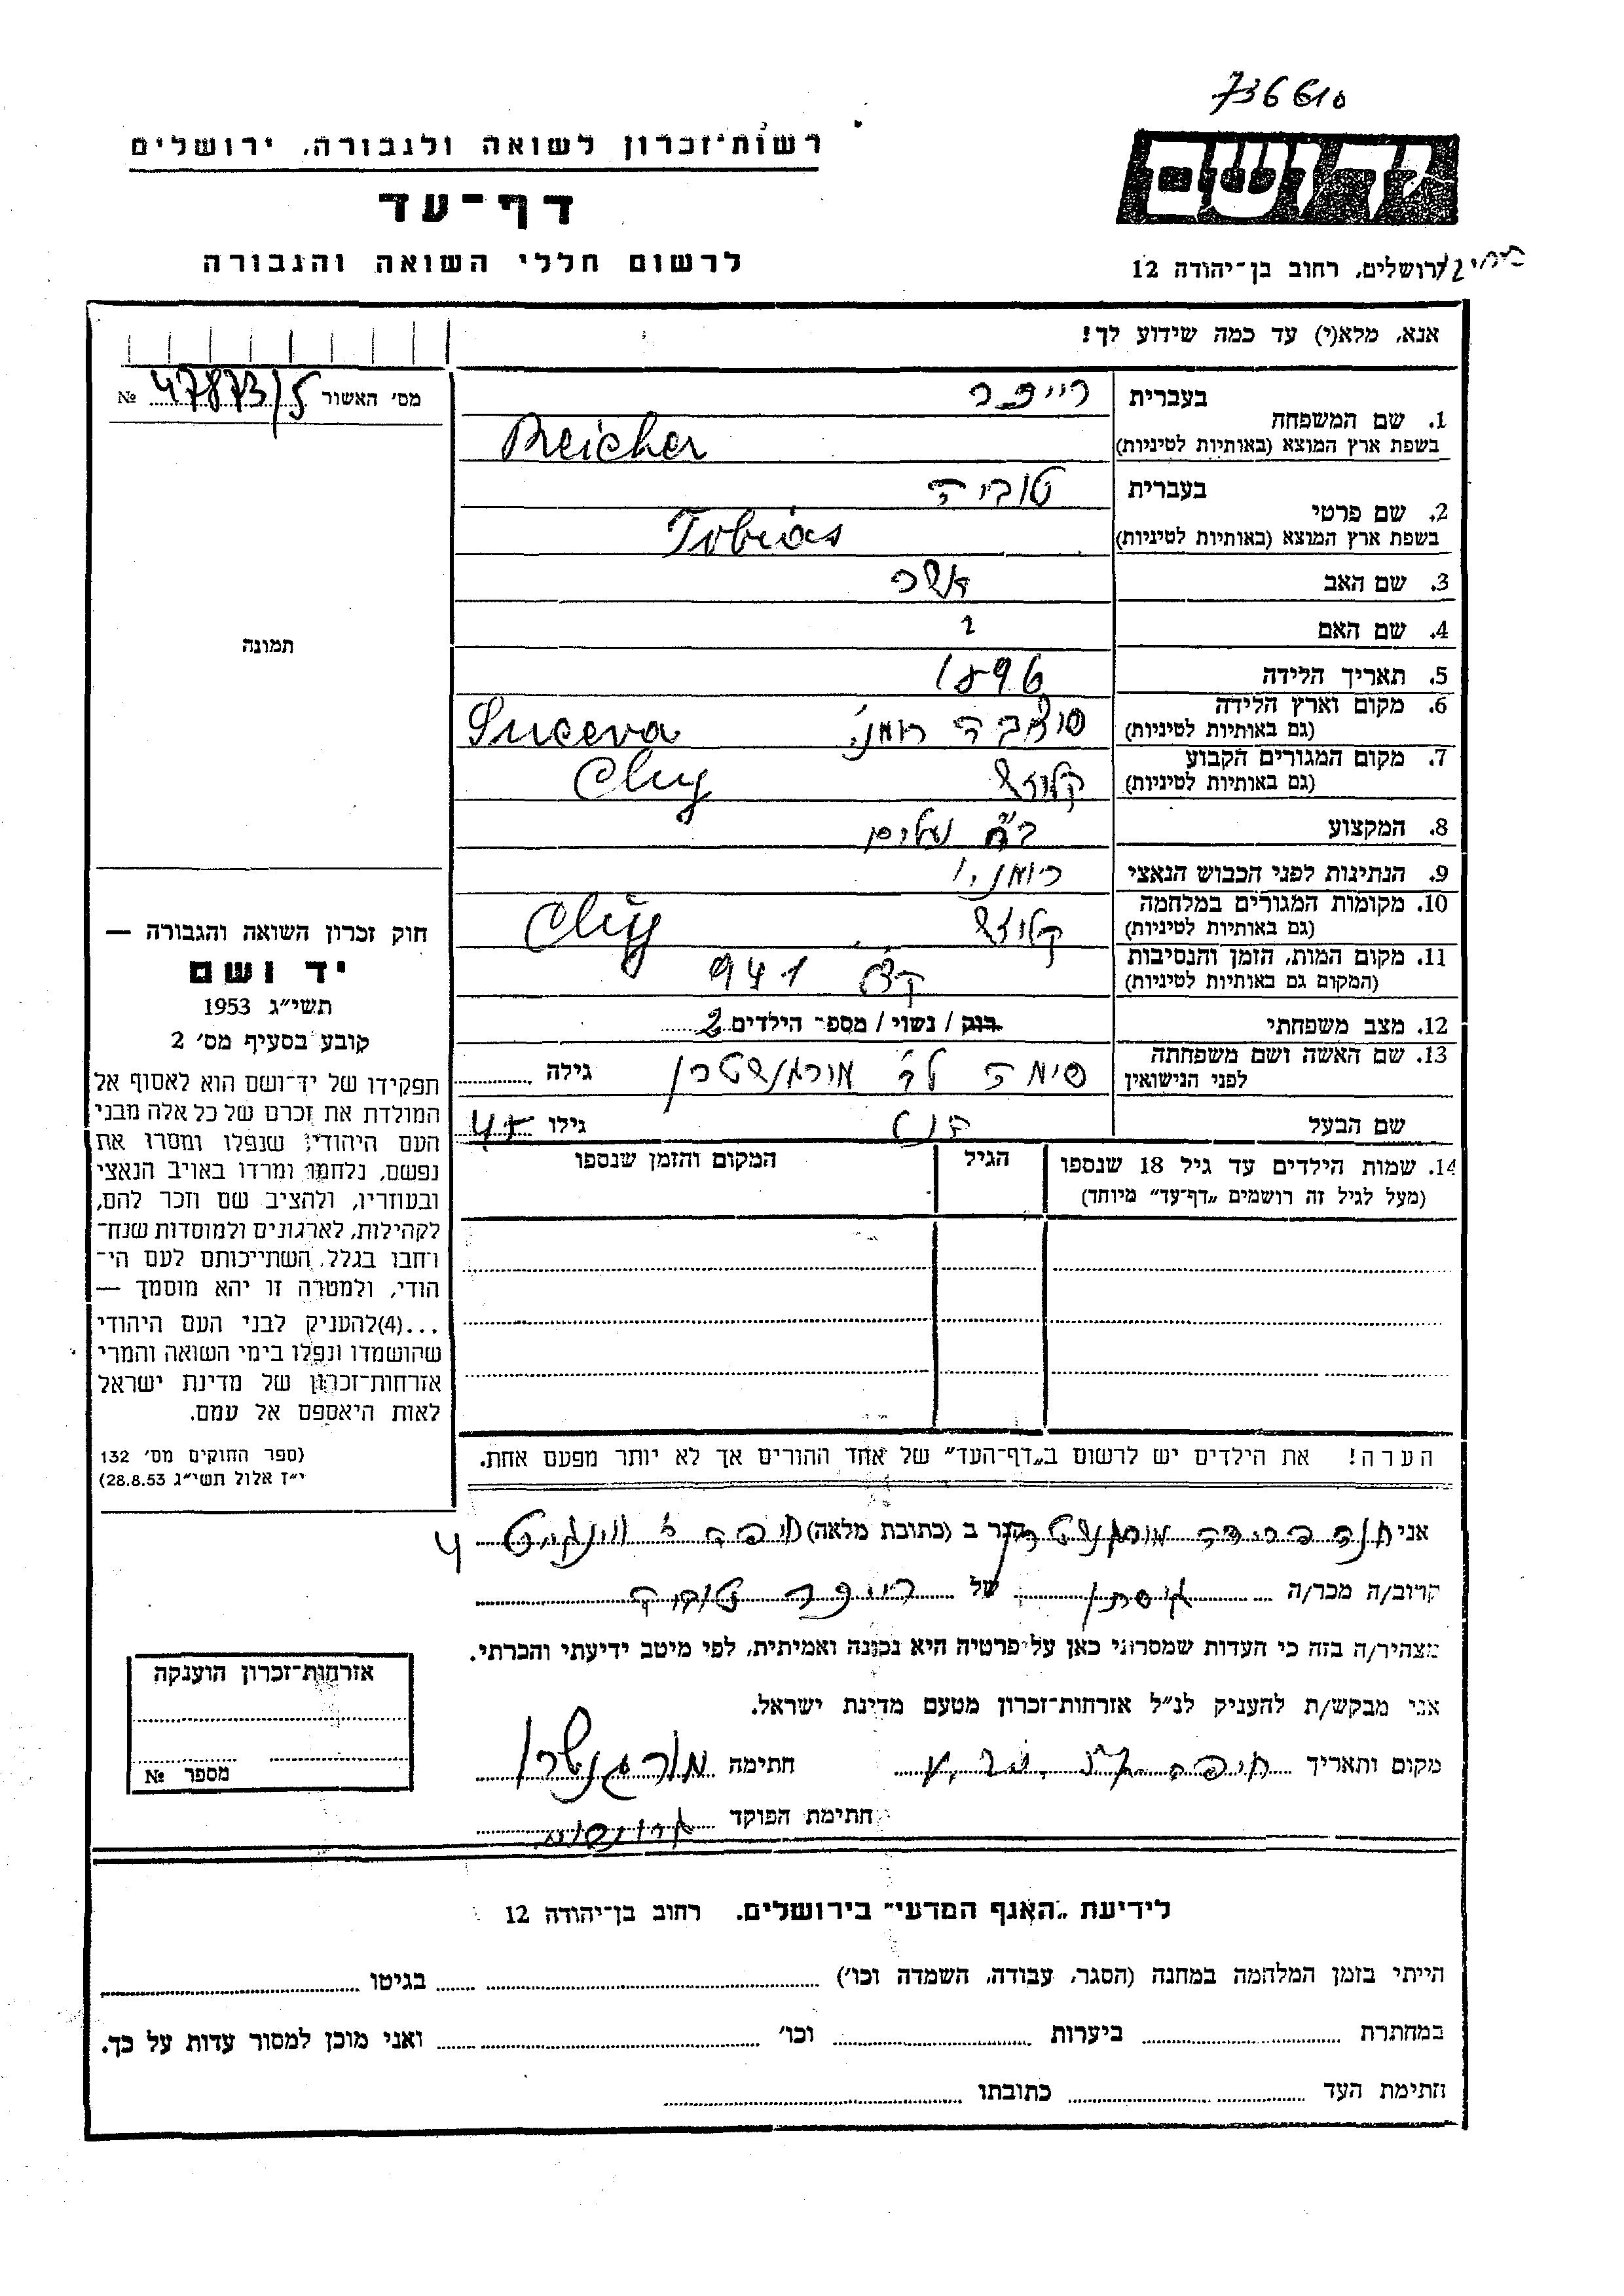 736610
רשות־זכרון לשואה ולגבורה, ירושלים
דף־עד
לרשום חללי השואה והגבורה
ידושם
ירושלים, רחוב בן־יהודה 12
אנא, מלא(י) עד כמה שידוע לך!
מס׳ האשור 47873/5 №
תמונה
בעברית
1. שם המשפחה
בשפת ארץ המוצא (באותיות לטיניות) Reicher
בעברית טוביה
2. שם פרטי
בשפת ארץ המוצא (באותיות לטיניות) Tobias
3. שם האב אשר
4. שם האם
5. תאריך הלידה 1896
6. מקום וארץ הלידה
(גם באותיות לטיניות) Suceva
7. מקום המגורים הקבוע
(גם באותיות לטיניות) קלוז׳ Cluj
8. המקצוע נעלים
9. הנתינות לפני הכבוש הנאצי
10. מקומות המגורים במלחמה
(גם באותיות לטיניות) קלוז׳ Cluj
11. מקום המות, הזמן והנסיבות
(המקום גם באותיות לטיניות) 941
12. מצב משפחתי רוק / נשוי / מספר הילדים 2
13. שם האשה ושם משפחתה
לפני הנישואין גילה
שם הבעל גילו 45
14. שמות הילדים עד גיל 18 שנספו
(מעל לגיל זה רושמים „דף־עד” מיוחד)
הגיל
המקום והזמן שנספו
הערה! את הילדים יש לרשום ב„דף־העד” של אחד ההורים אך לא יותר מפעם אחת.
חוק זכרון השואה והגבורה —
יד ושם
תשי״ג 1953
קובע בסעיף מס׳ 2
תפקידו של יד־ושם הוא לאסוף אל
המולדת את זכרם של כל אלה מבני
העם היהודי, שנפלו ומסרו את
נפשם, נלחמו ומרדו באויב הנאצי
ובעוזריו, ולהציב שם וזכר להם,
לקהילות, לארגונים ולמוסדות שנח־
רבו בגלל השתייכותם לעם הי־
הודי, ולמטרה זו יהא מוסמך —
...(4)להעניק לבני העם היהודי
שהושמדו ונפלו בימי השואה והמרי
אזרחות־זכרון של מדינת ישראל
לאות היאספם אל עמם.
(ספר החוקים מס׳ 132
י״ז אלול תשי״ג 28.8.53)
אני הגר ב (כתובת מלאה) חיפה
קרוב/ה מכר/ה של
מצהיר/ה בזה כי העדות שמסרתי כאן על פרטיה היא נכונה ואמיתית, לפי מיטב ידיעתי והכרתי.
אני מבקש/ת להעניק לנ״ל אזרחות־זכרון מטעם מדינת ישראל.
מקום ותאריך חיפה חתימה
חתימת הפוקד
אזרחות־זכרון הוענקה
מספר №
לידיעת „האגף המדעי” בירושלים, רחוב בן־יהודה 12
הייתי בזמן המלחמה במחנה (הסגר, עבודה, השמדה וכו׳) בגיטו
במחתרת ביערות וכו׳ ואני מוכן למסור עדות על כך.
חתימת העד כתובתו